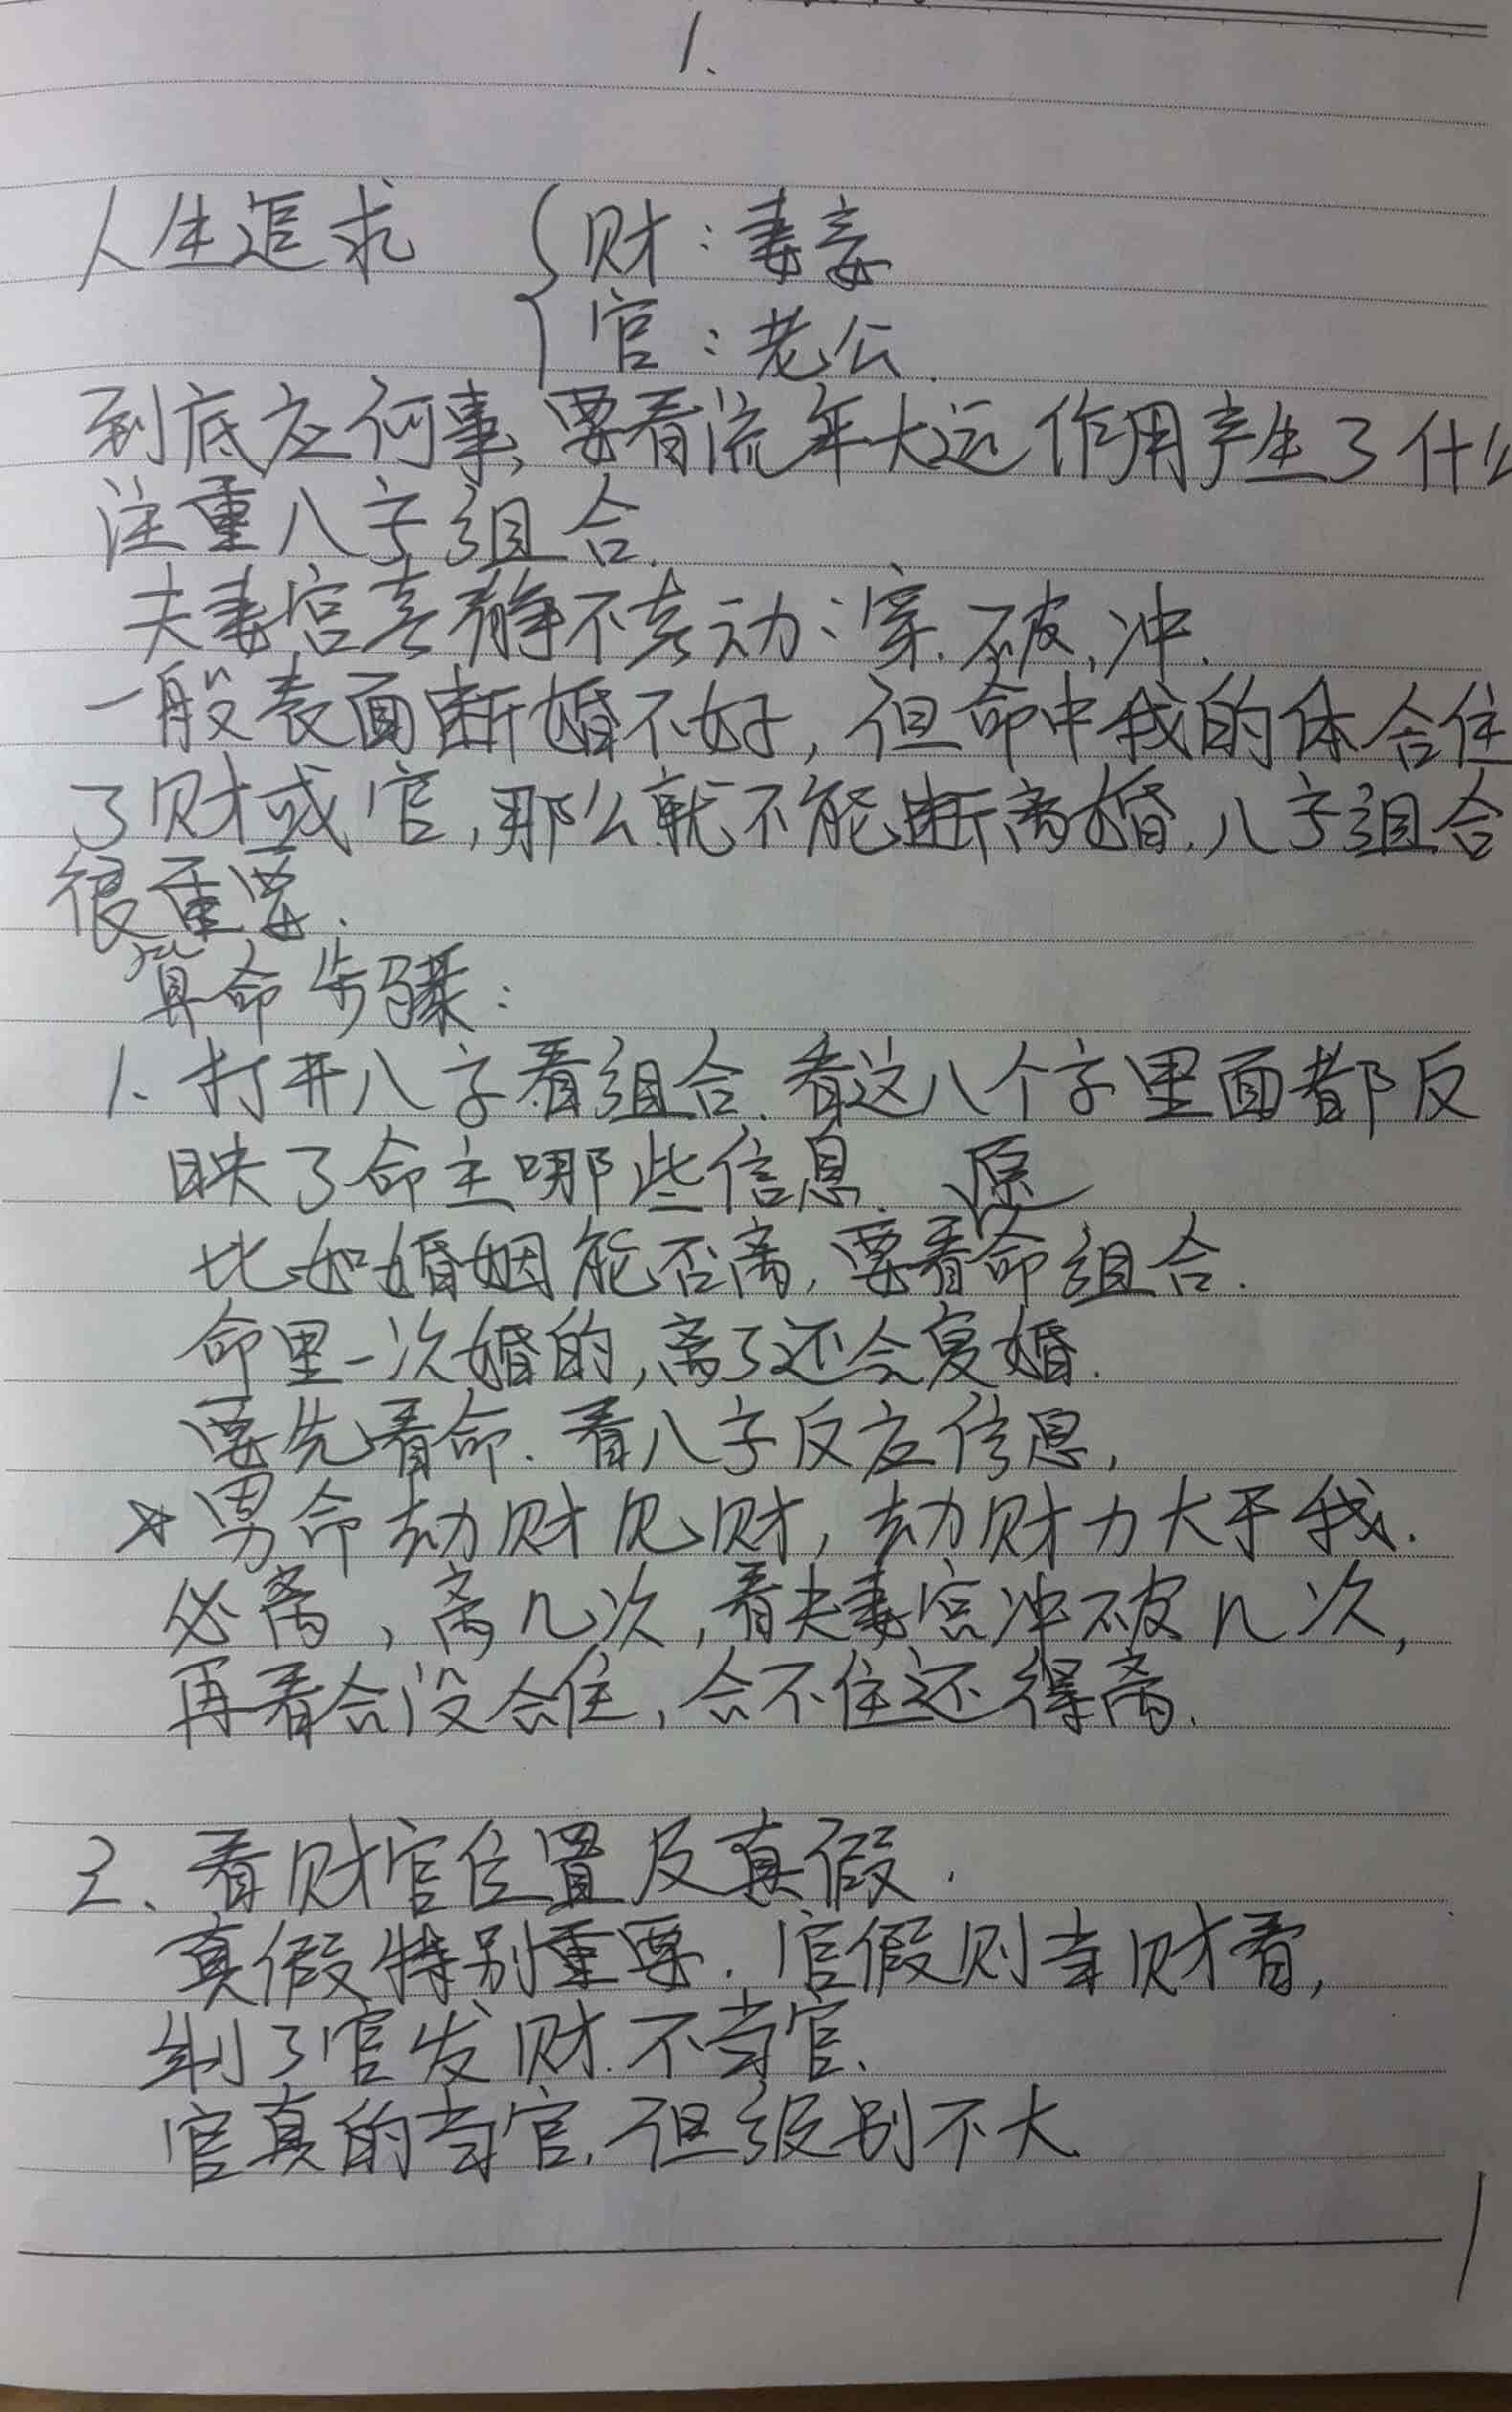 1.
人生追求 { 财：妻妾
官：老公.
到底应何事，要看流年大运作用产生了什么
注重八字组合.
夫妻宫喜静不喜动：穿.破,冲.
一般表面断婚不好，但命中我的体合住
了财或官,那么就不能断离婚.八字组合
很重要.
算命步骤：
1、打开八字看组合.看这八个字里面都反
映了命主哪些信息. 原
比如婚姻能否离,要看命组合.
命里一次婚的,离了还会复婚.
要先看命.看八字反应信息,
☆男命劫财见财,劫财力大于我.
必离,离几次,看夫妻宫冲破几次,
再看合没合住,合不住还得离.
2、看财官位置及真假.
真假特别重要.官假则当财看,
制了官发财.不当官.
官真的当官.但级别不大
1